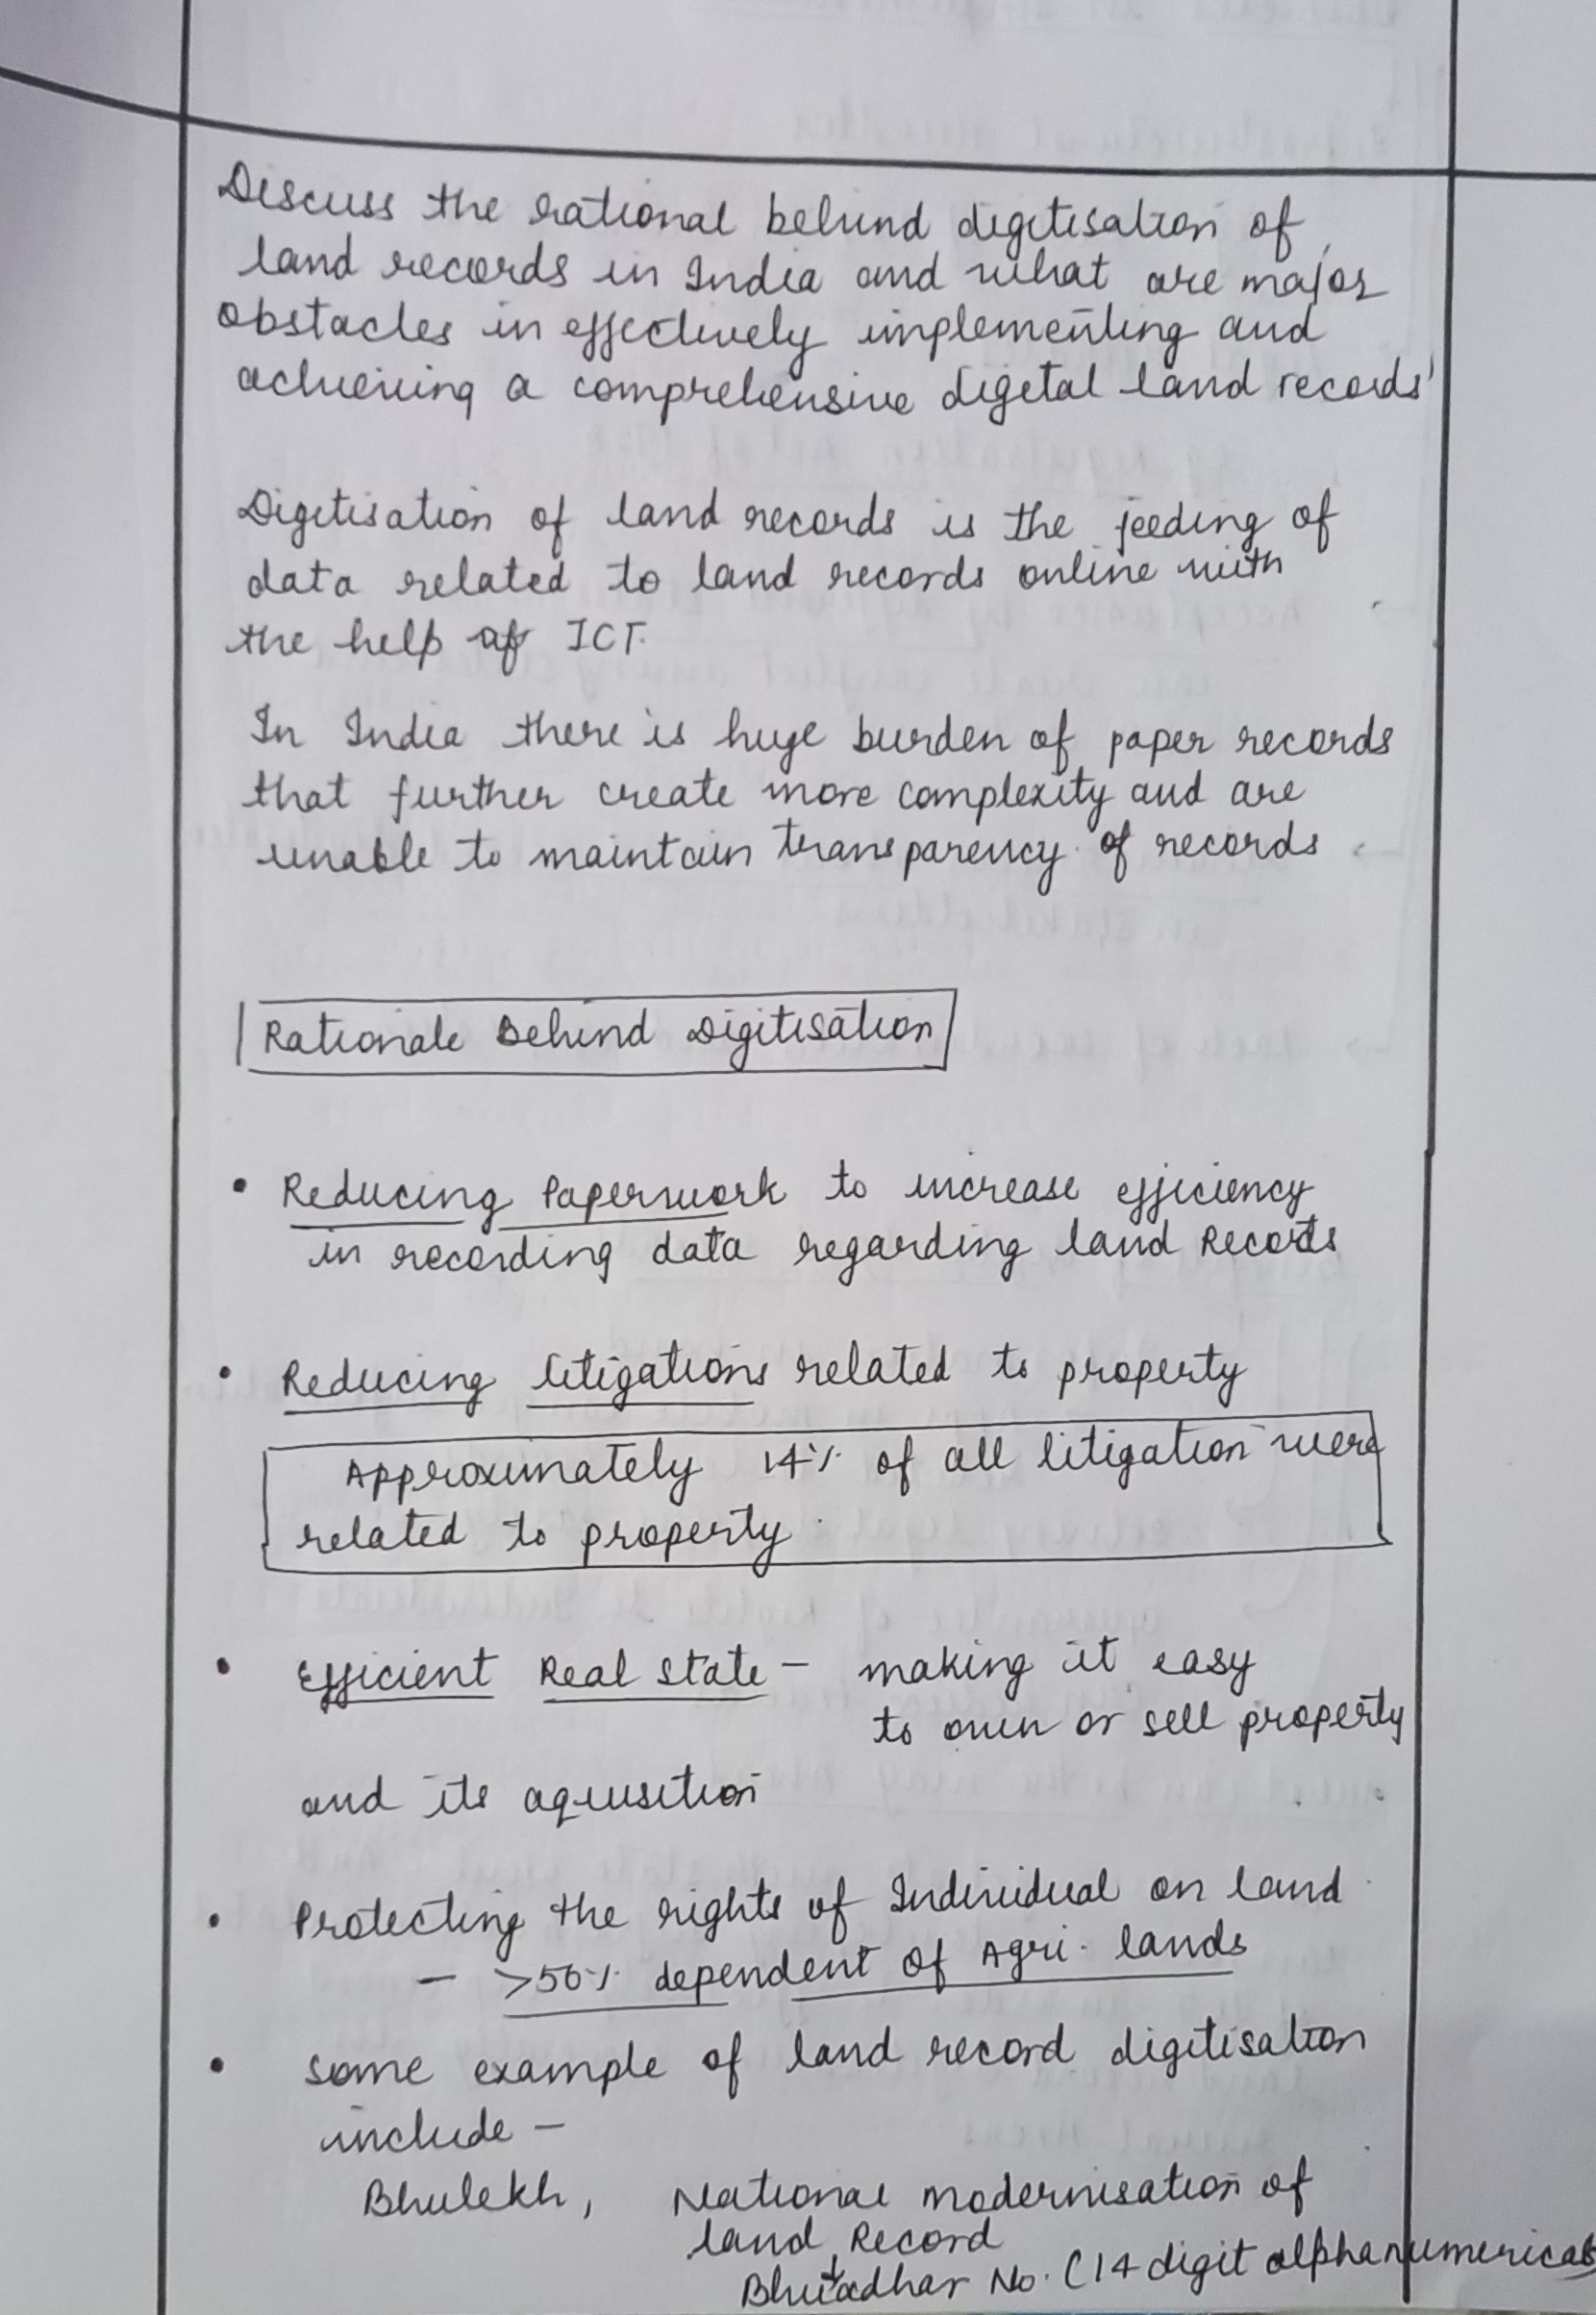 Discuss the rational behind digitisation of
land records in India and what are major
obstacles in effectively implementing and
achieving a comprehensive digital land records'
Digitisation of land records is the feeding of
data related to land records online with
the help of ICT.
In India there is huge burden of paper records
that further create more complexity and are
unable to maintain transparency of records
Rationale Behind Digitisation
• Reducing Paperwork to increase efficiency
in recording data regarding land Records
• Reducing litigations related to property
Approximately 14% of all litigation were
related to property.
• Efficient Real State - making it easy
to own or sell property
and its aqusition
• Protecting the rights of Individual on land
- >50% dependent of Agri. lands
• some example of land record digitisation
include -
Bhulekh, National modernisation of
land Record
Bhu adhar No. (14 digit alphanumerical)